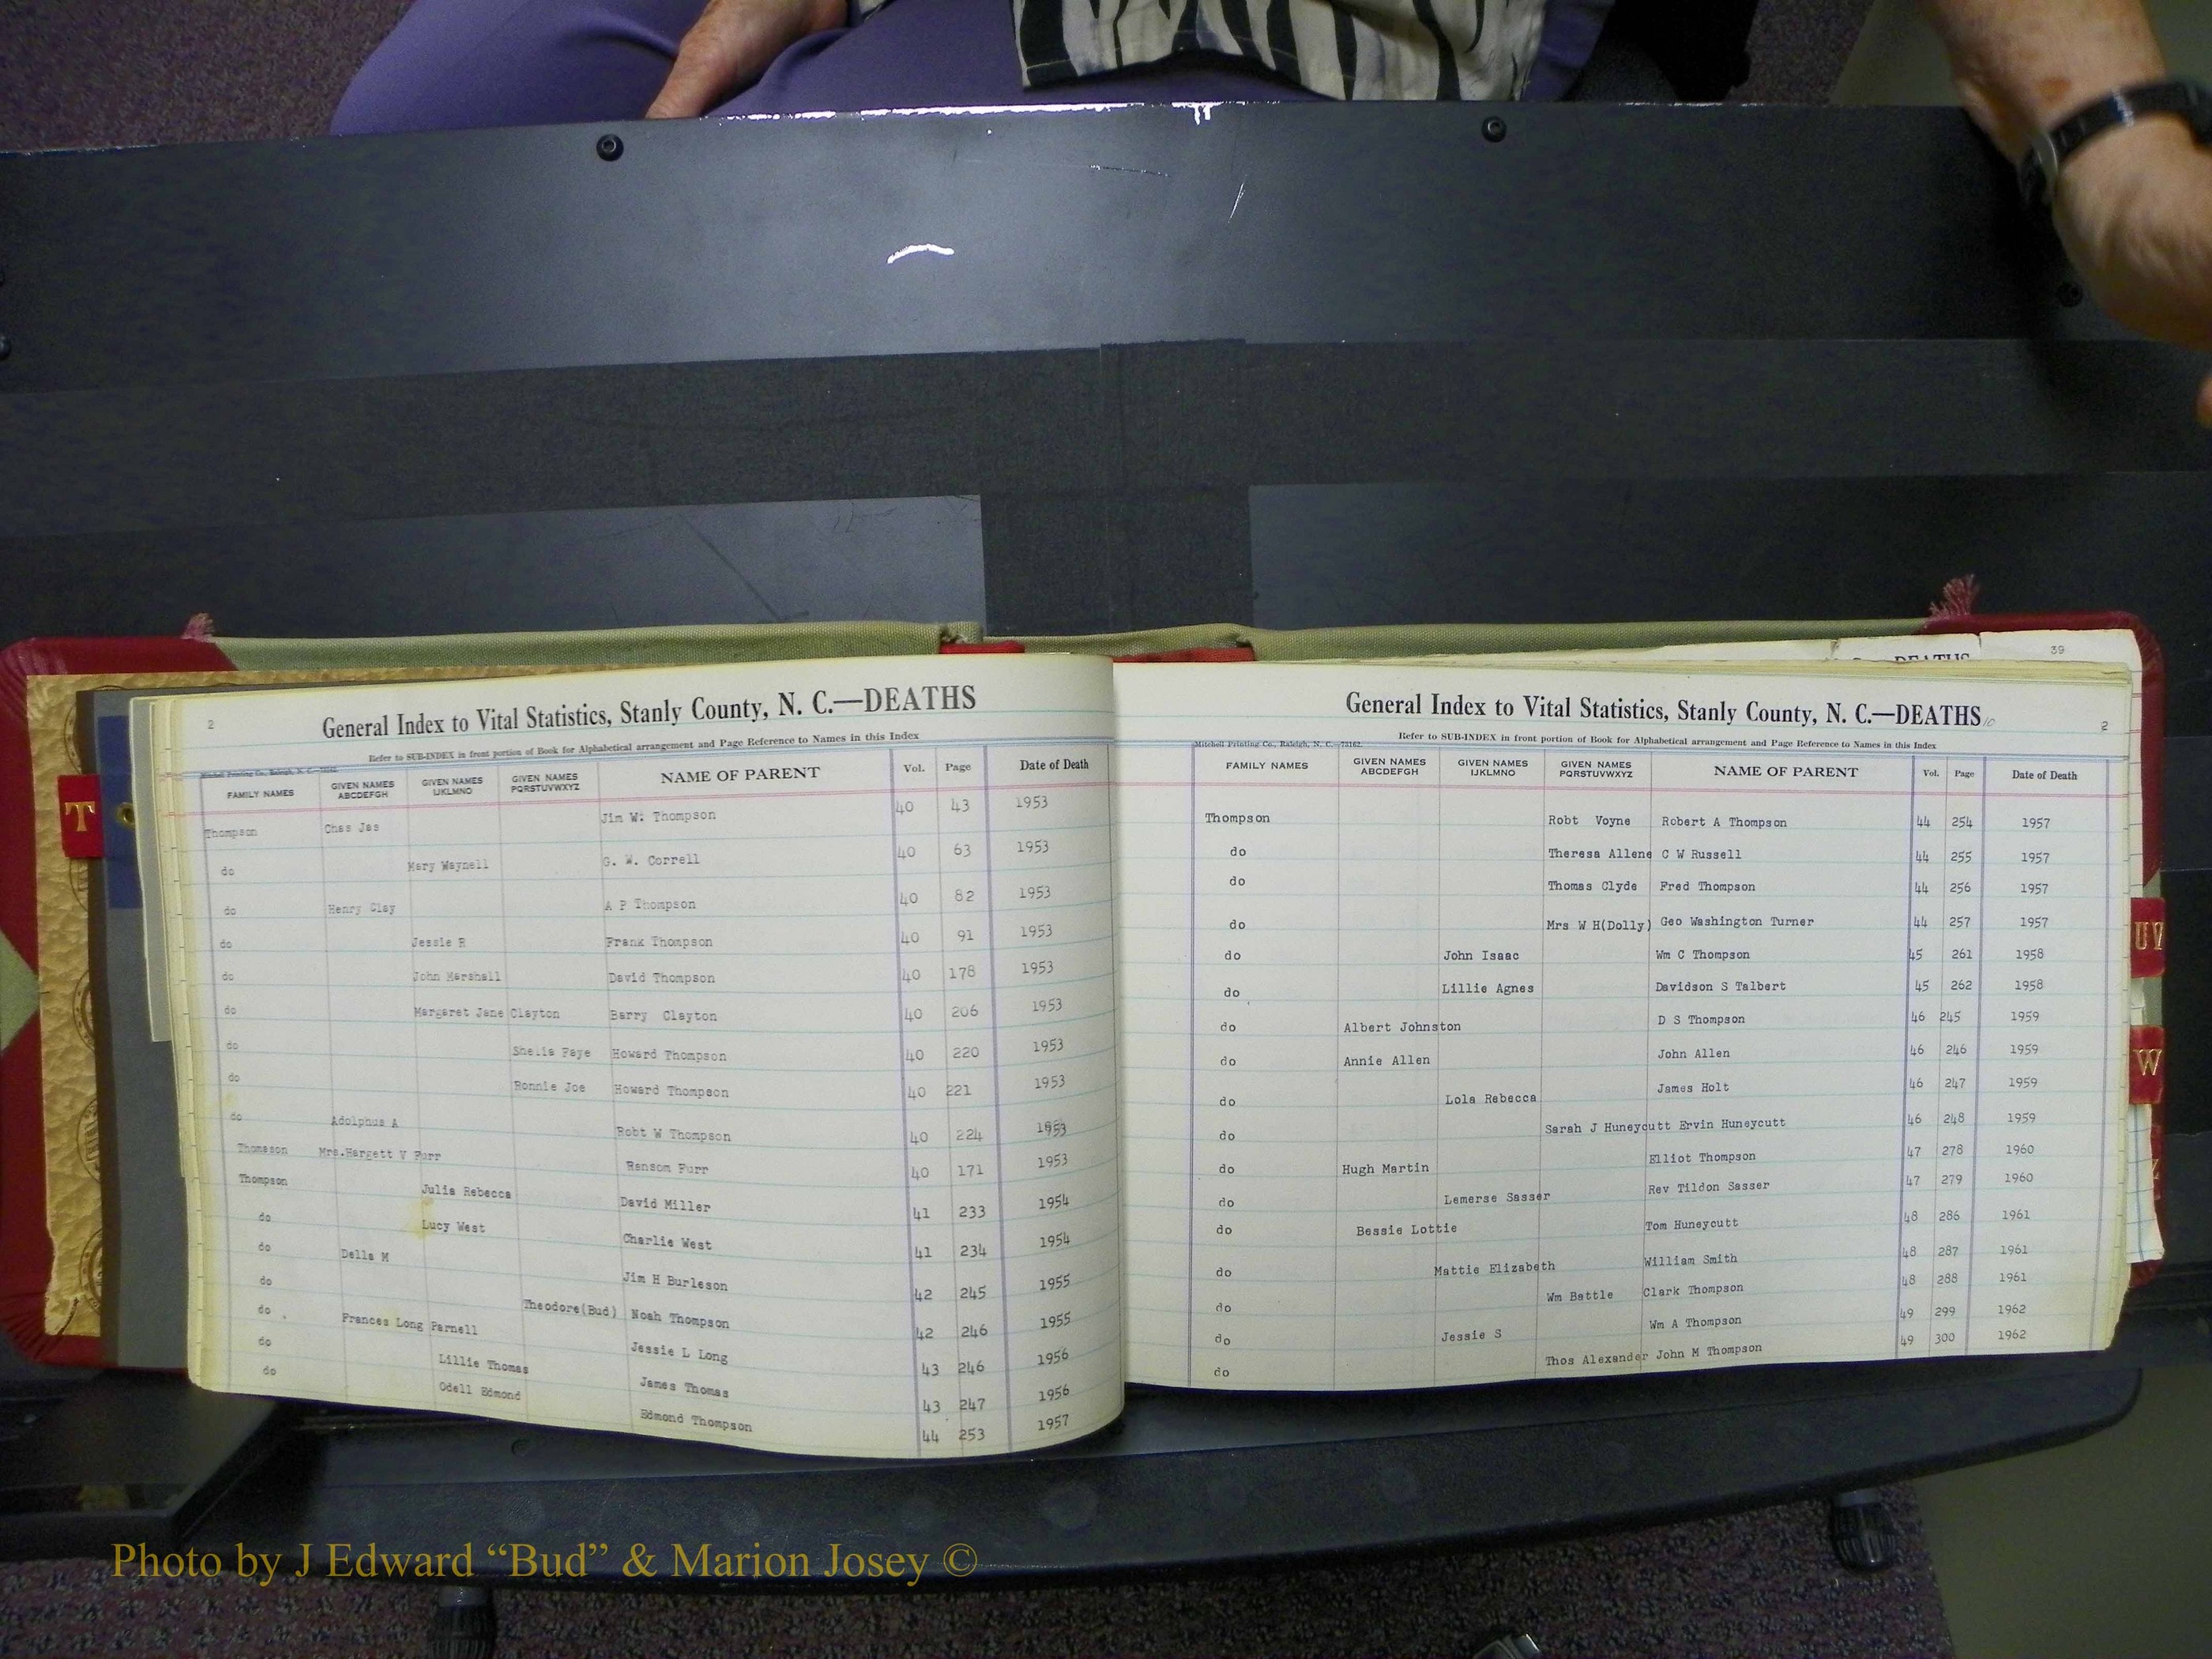 DEATHS 39
2
General Index to Vital Statistics, Stanly County, N. C.—DEATHS
Refer to SUB-INDEX in front portion of Book for Alphabetical arrangement and Page Reference to Names in this Index
Mitchell Printing Co., Raleigh, N. C.
FAMILY NAMES GIVEN NAMES ABCDEFGH GIVEN NAMES IJKLMNO GIVEN NAMES PQRSTUVWXYZ NAME OF PARENT Vol. Page Date of Death
Thompson Chas Jas Jim W. Thompson 40 43 1953
do Mary Waynell G. W. Correll 40 63 1953
do Henry Clay A P Thompson 40 82 1953
do Jessie R Frank Thompson 40 91 1953
do John Marshall David Thompson 40 178 1953
do Margaret Jane Clayton Barry Clayton 40 206 1953
do Shelia Faye Howard Thompson 40 220 1953
do Ronnie Joe Howard Thompson 40 221 1953
do Adolphus A Robt W Thompson 40 224 1953
Thomsson Mrs.Hargett V Furr Ransom Furr 40 171 1953
Thompson Julia Rebecca David Miller 41 233 1954
do Lucy West Charlie West 41 234 1954
do Della M Jim H Burleson 42 245 1955
do Theodore(Bud) Noah Thompson 42 246 1955
do Frances Long Parnell Jessie L Long 43 246 1956
do Lillie Thomas James Thomas 43 247 1956
do Odell Edmond Edmond Thompson 44 253 1957
T
General Index to Vital Statistics, Stanly County, N. C.—DEATHS 10
2
Refer to SUB-INDEX in front portion of Book for Alphabetical arrangement and Page Reference to Names in this Index
Mitchell Printing Co., Raleigh, N. C.—73162.
FAMILY NAMES GIVEN NAMES ABCDEFGH GIVEN NAMES IJKLMNO GIVEN NAMES PQRSTUVWXYZ NAME OF PARENT Vol. Page Date of Death
Thompson Robt Voyne Robert A Thompson 44 254 1957
do Theresa Allene C W Russell 44 255 1957
do Thomas Clyde Fred Thompson 44 256 1957
do Mrs W H(Dolly) Geo Washington Turner 44 257 1957
do John Isaac Wm C Thompson 45 261 1958
do Lillie Agnes Davidson S Talbert 45 262 1958
do Albert Johnston D S Thompson 46 245 1959
do Annie Allen John Allen 46 246 1959
do Lola Rebecca James Holt 46 247 1959
do Sarah J Huneycutt Ervin Huneycutt 46 248 1959
do Hugh Martin Elliot Thompson 47 278 1960
do Lemerse Sasser Rev Tildon Sasser 47 279 1960
do Bessie Lottie Tom Huneycutt 48 286 1961
do Mattie Elizabeth William Smith 48 287 1961
do Wm Battle Clark Thompson 48 288 1961
do Jessie S Wm A Thompson 49 299 1962
do Thos Alexander John M Thompson 49 300 1962
W
Photo by J Edward “Bud” & Marion Josey ©